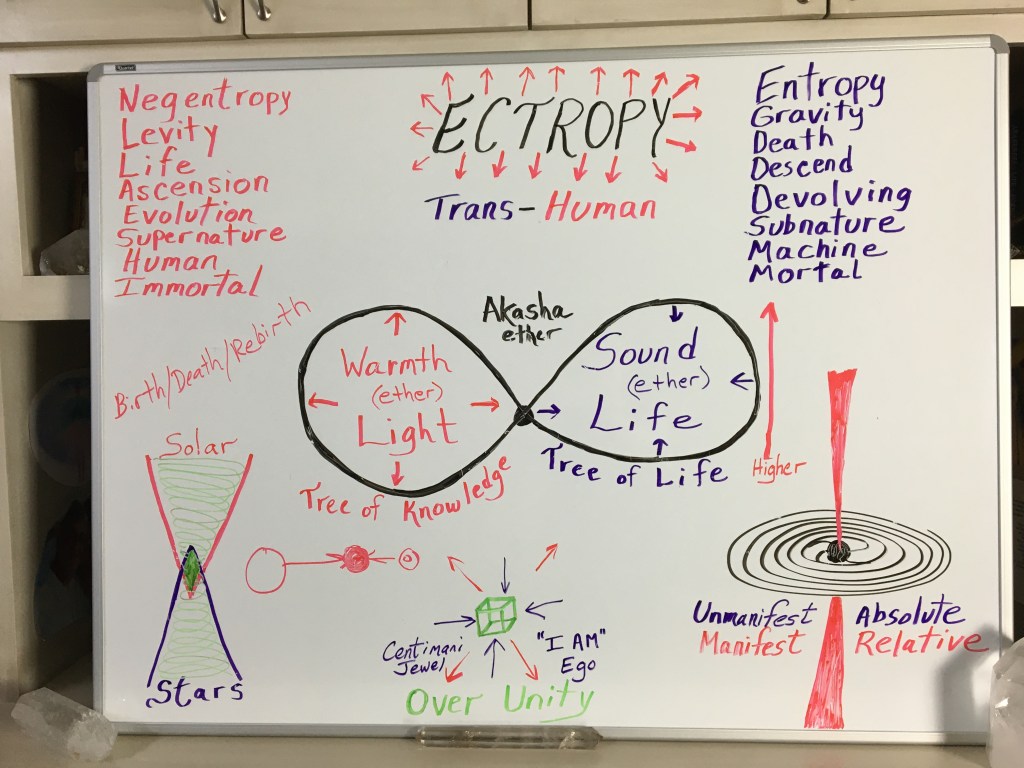 Negentropy
Levity
Life
Ascension
Evolution
Supernature
Human
Immortal
ECTROPY
Trans-Human
Entropy
Gravity
Death
Descend
Devolving
Subnature
Machine
Mortal
Birth/Death/Rebirth
Akasha
ether
Warmth
(ether)
Light
Sound
(ether)
Life
Tree of Knowledge
Tree of Life
Higher
Solar
Stars
Centimani
Jewel
"I AM"
Ego
Over Unity
Unmanifest
Manifest
Absolute
Relative